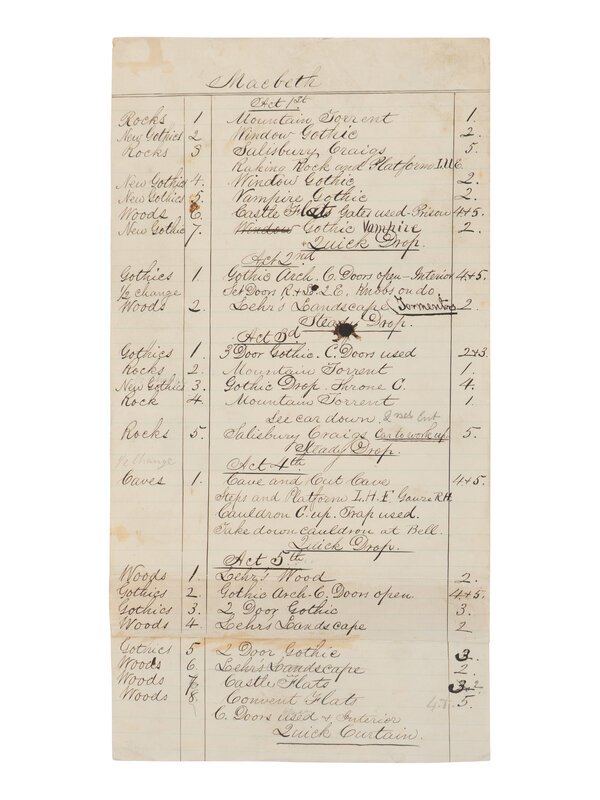 Macbeth
Act 1st
Rocks 1 Mountain Torrent 1.
New Gothics 2. Window Gothic 2.
Rocks 3 Salisbury Craigs 5.
Raking Rock and Platform
New Gothic 4. Window Gothic 2.
New Gothics 5. Vampire Gothic 2.
Woods 6. Castle Flats Gates used. Prison 4+5.
New Gothic 7. Window Gothic Vampire 2.
Quick Drop.
Act 2nd
Gothics 1 Gothic Arch. C. Doors open - Interior 4+5.
1/2 change Set Doors R + L. 2 E. Knobs on do.
Woods 2. Lehr's Landscape Tormentors 2.
Steady Drop.
Act 3d
Gothics 1. 3 Door Gothic. C. Doors used 2+3.
Rocks 2. Mountain Torrent 1.
New Gothic 3. Gothic Drop. Throne C. 4.
Rock 4. Mountain Torrent 1.
See car down.
Rocks 5. Salisbury Craigs Car to work up. 5.
Steady Drop.
1/2 change
Act 4th
Caves 1. Cave and Cut Cave 4+5.
Steps and Platform L.H. Gauze R.H.
Cauldron C. up. Trap used.
Take down cauldron at Bell.
Quick Drop.
Act 5th
Woods 1. Lehr's Wood 2.
Gothics 2. Gothic Arch. C. Doors open. 4+5.
Gothics 3. 2 Door Gothic 3.
Woods 4. Lehr's Landscape 2
Gothics 5 2 Door Gothic 3.
Woods 6. Lehr's Landscape 2.
Woods 7. Castle Flats 3
Woods 8. Convent Flats 5.
C. Doors used + Interior
Quick Curtain.